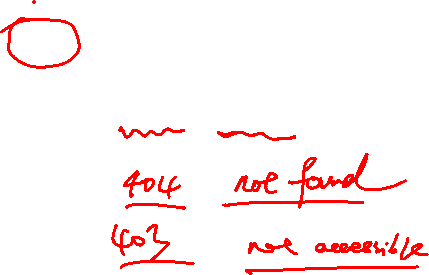 404 not found
403 not accessible